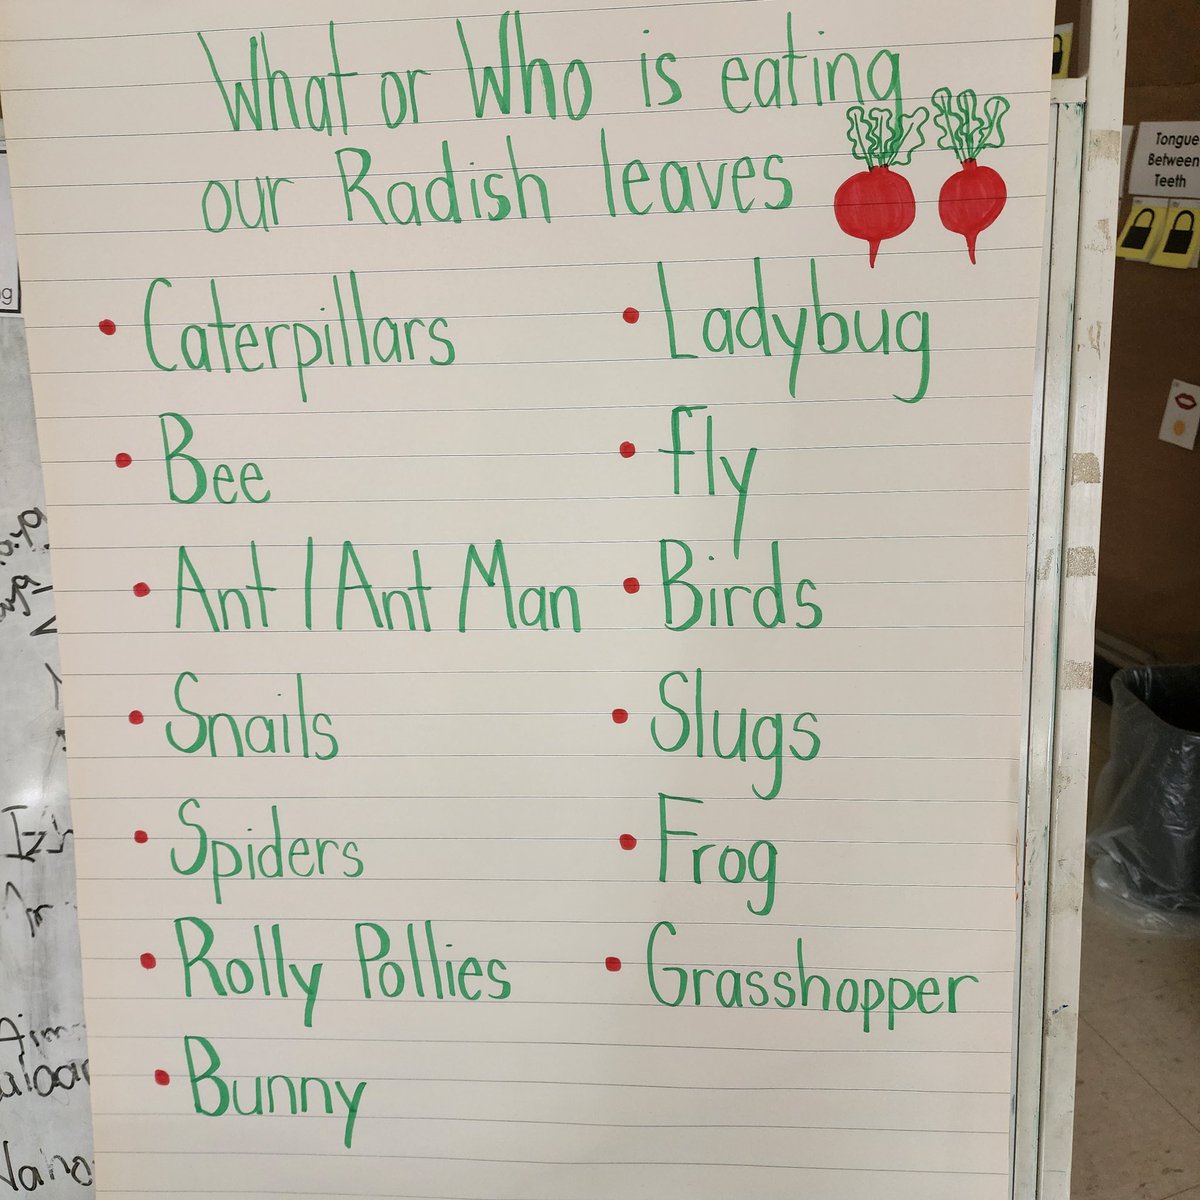 What or Who is eating
our Radish leaves
• Caterpillars
• Bee
• Ant / Ant Man
• Snails
• Spiders
• Rolly Pollies
• Bunny
• Ladybug
• fly
• Birds
• Slugs
• Frog
• Grasshopper
Tongue
Between
Teeth